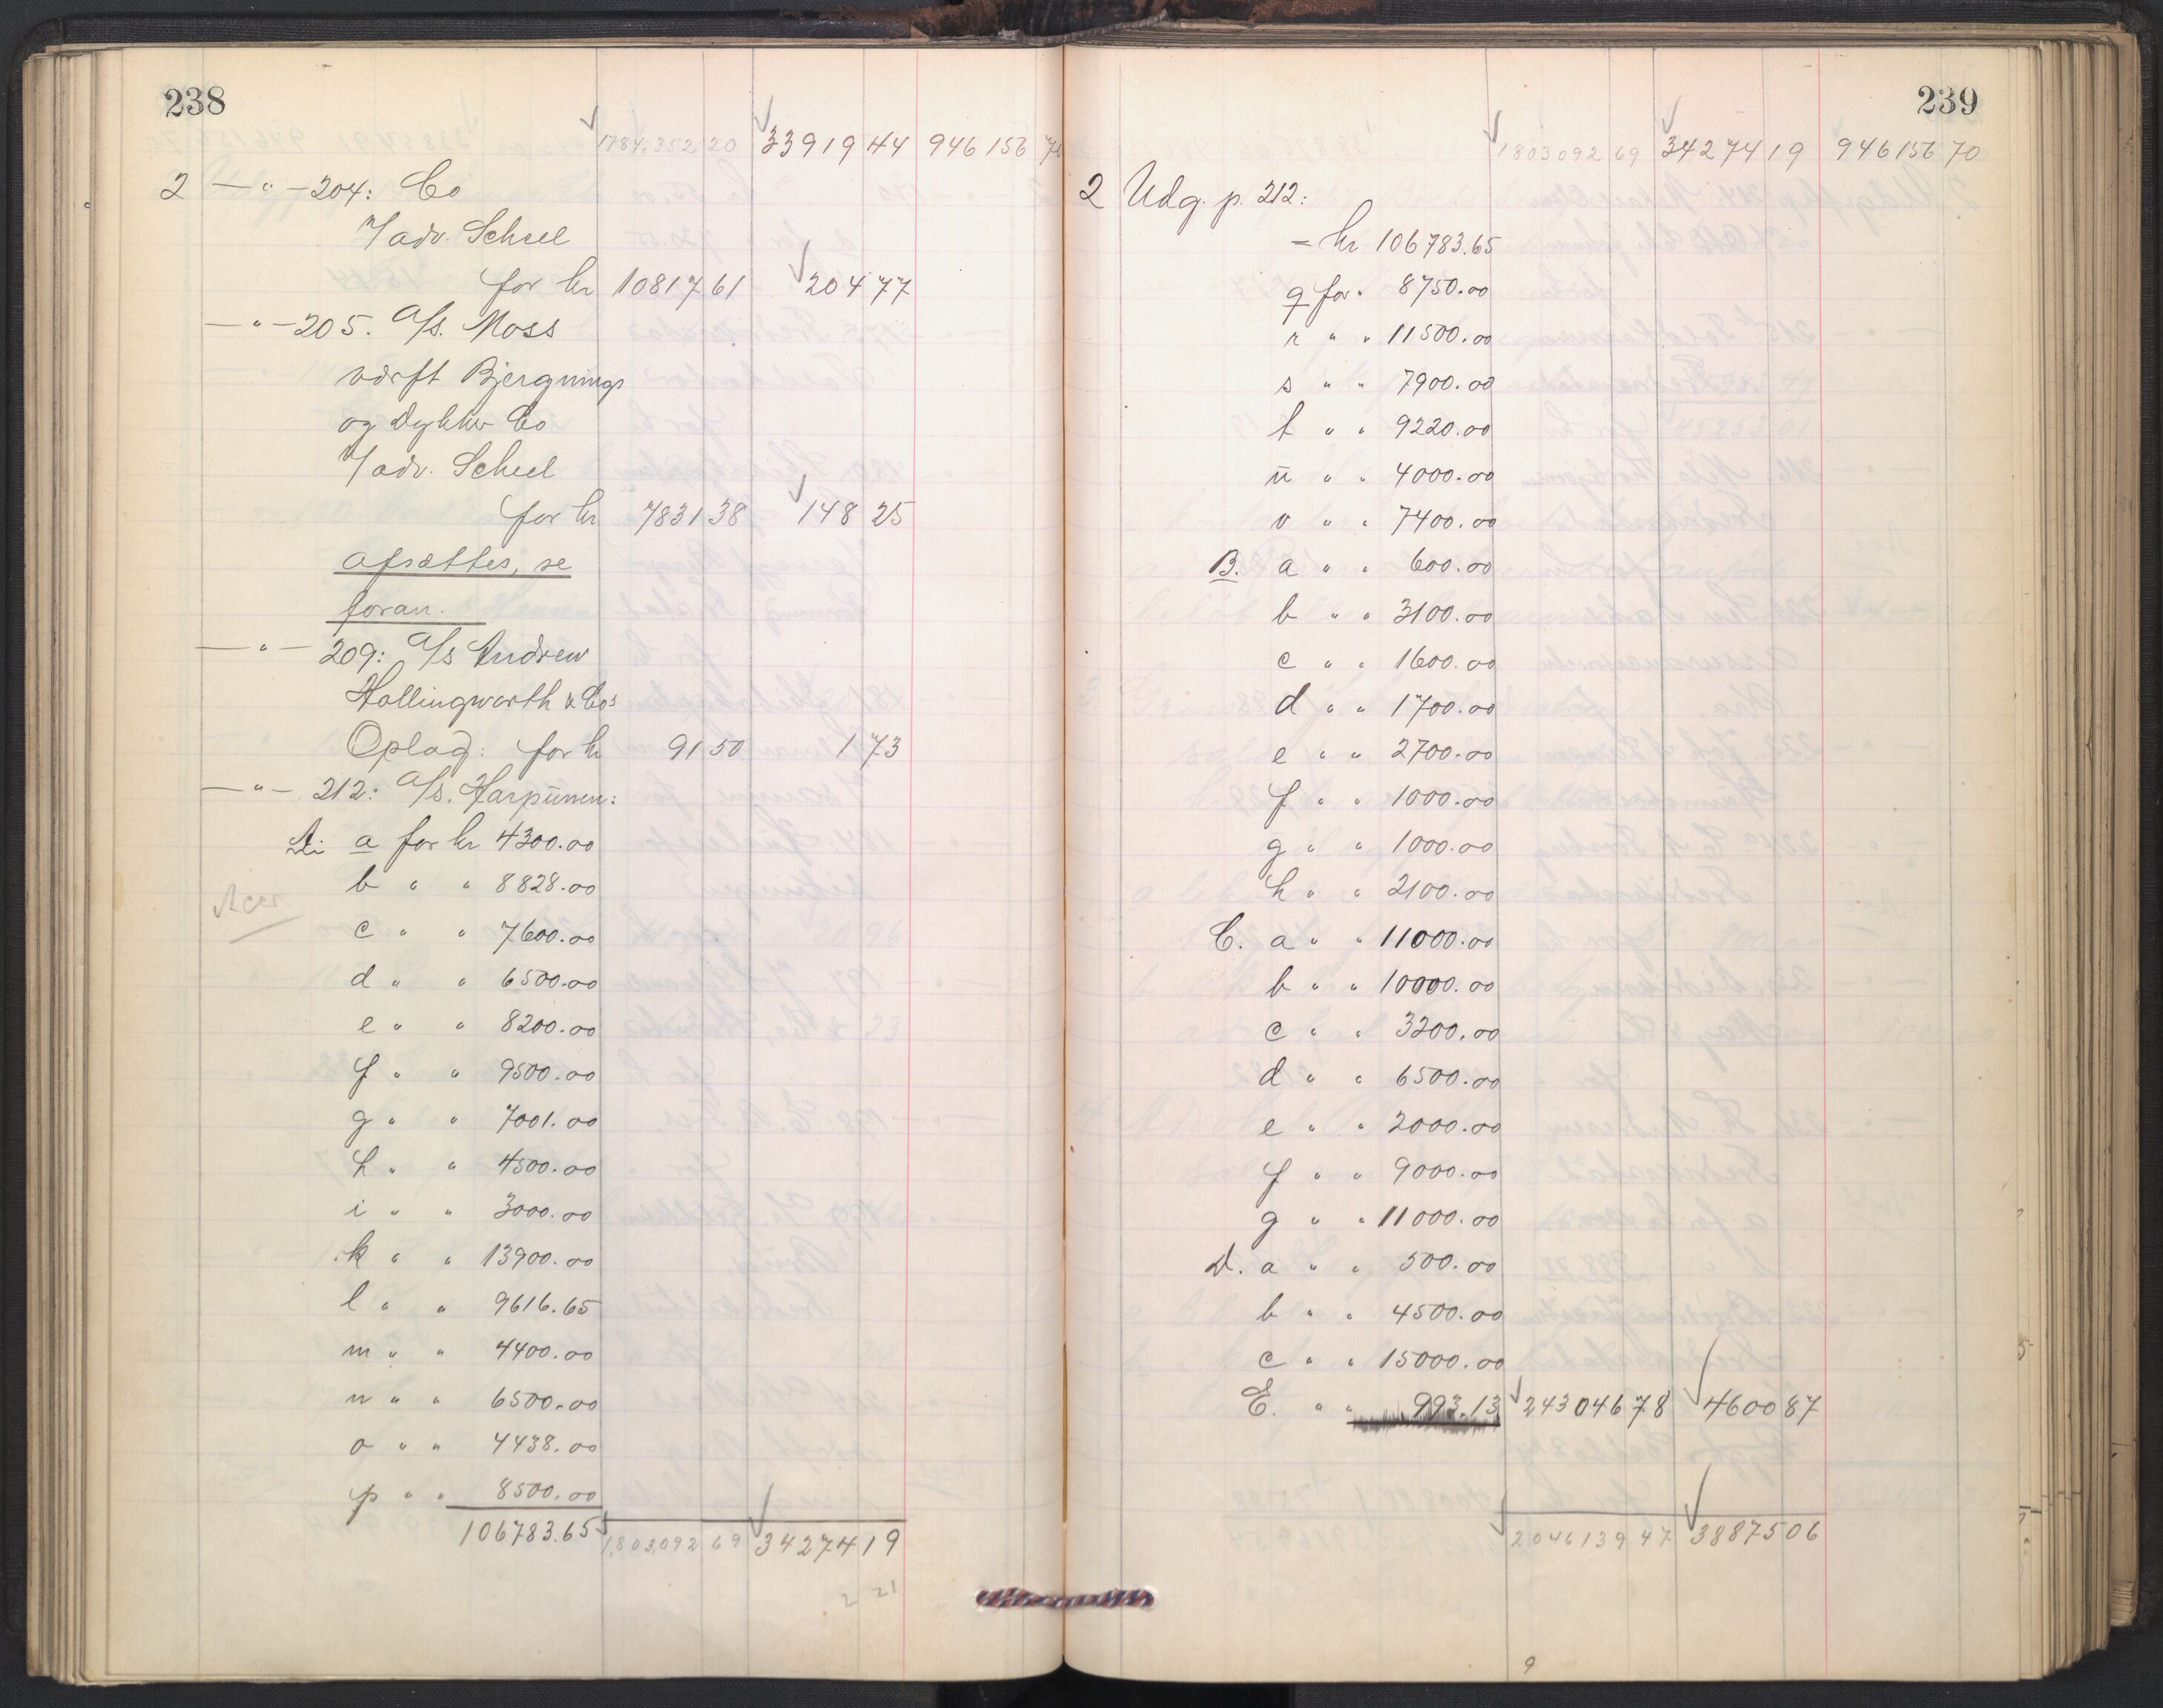 238
1784.352 20 33919 44 946 156 70
2 — " — 204: Co
v/ adv. Scheel
for kr 10817 61 204 77
— " — 205. A/S. Moss
værft Bjergnings
og Dykker Co
v/ adv. Scheel
for kr 7831 38 148 25
afsættes, se
foran.
— " — 209: A/S Andrew
Hollingworth & Cos
Oplag: for kr 91 50 1 73
— " — 212: A/S. Harpunen:
A: a for kr 4300.00
b " " 8828.00
c " " 7600.00
d " " 6500.00
e " " 8200.00
f " " 9500.00
g " " 7001.00
h " " 4500.00
i " " 3000.00
k " " 13900.00
l " " 9616.65
m " " 4400.00
n " " 6500.00
o " " 4438.00
p " " 8500.00
106783.65 1,803,092 69 34274 19
2 21
239
1803092 69 34274 19 946156 70
2 Udg. p. 212:
= kr 106783.65
q for " 8750.00
r " " 11500.00
s " " 7900.00
t " " 9220.00
u " " 4000.00
v " " 7400.00
B. a " " 600.00
b " " 3100.00
c " " 1600.00
d " " 1700.00
e " " 2700.00
f " " 1000.00
g " " 1000.00
h " " 2100.00
C. a " " 11000.00
b " " 10000.00
c " " 3200.00
d " " 6500.00
e " " 2000.00
f " " 9000.00
g " " 11000.00
D. a " " 500.00
b " " 4500.00
c " " 15000.00
E. " " 993.13 243046 78 4600 87
2046139 47 38875 06
9